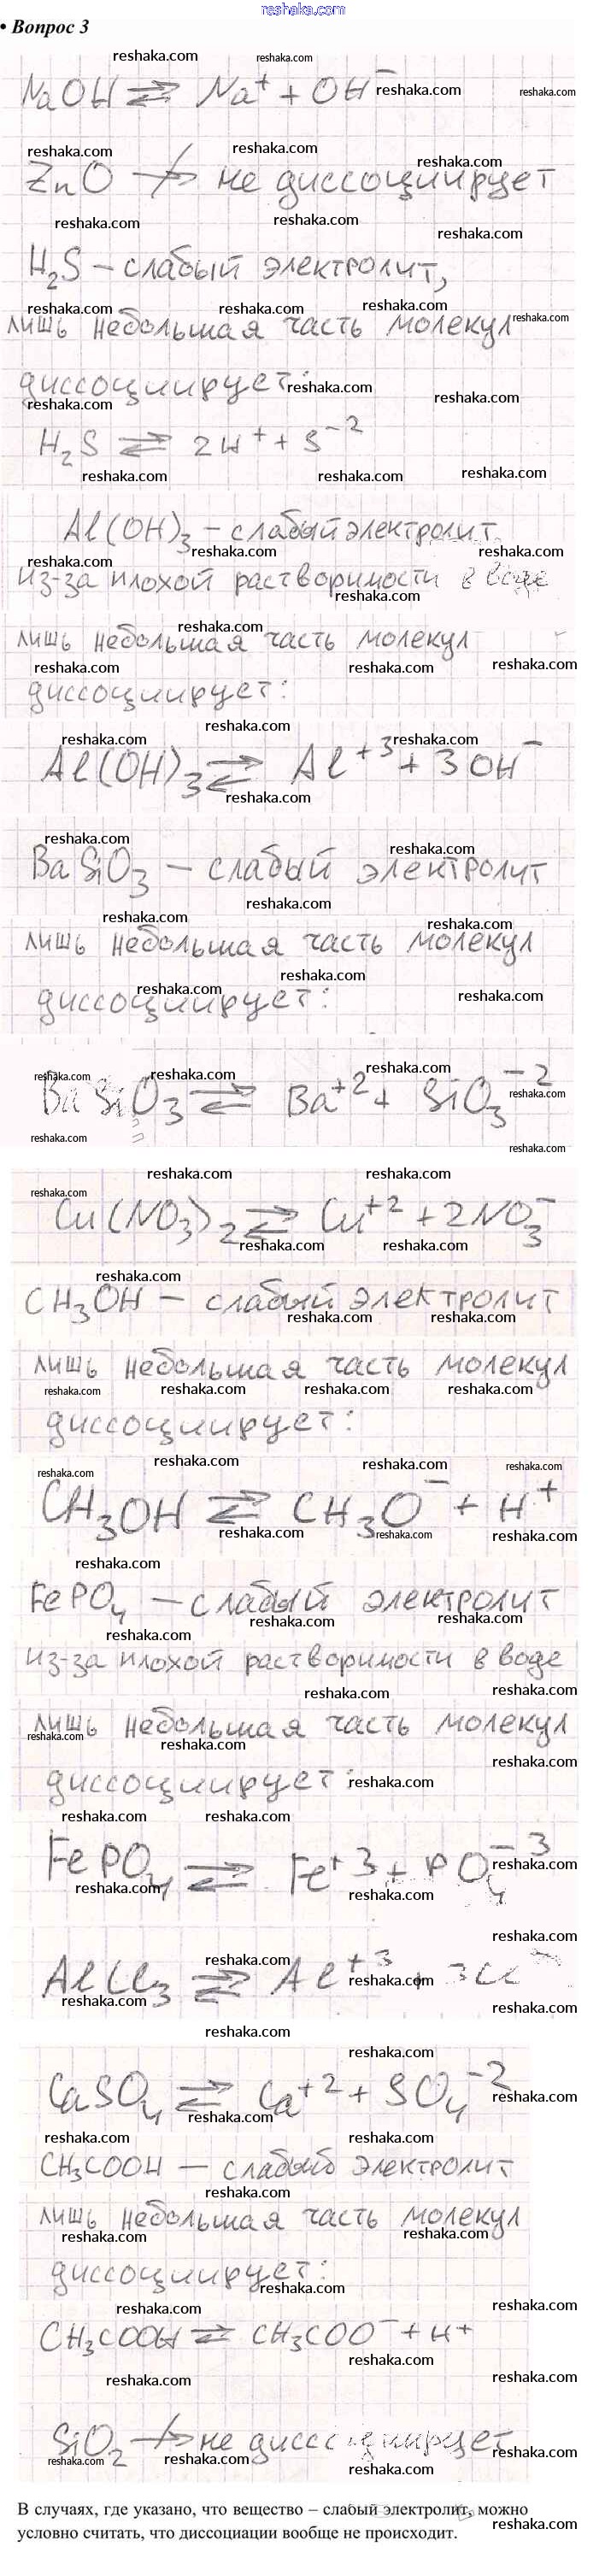 reshaka.com
• Вопрос 3
NaOH ⇄ Na⁺ + OH⁻
ZnO ↛ не диссоциирует
H₂S – слабый электролит,
лишь небольшая часть молекул
диссоциирует:
H₂S ⇄ 2H⁺ + S⁻²
Al(OH)₃ – слабый электролит
из-за плохой растворимости в воде
лишь небольшая часть молекул
диссоциирует:
Al(OH)₃ ⇄ Al⁺³ + 3OH⁻
BaSiO₃ – слабый электролит
лишь небольшая часть молекул
диссоциирует:
BaSiO₃ ⇄ Ba⁺² + SiO₃⁻²
Cu(NO₃)₂ ⇄ Cu⁺² + 2NO₃⁻
CH₃OH – слабый электролит
лишь небольшая часть молекул
диссоциирует:
CH₃OH ⇄ CH₃O⁻ + H⁺
FePO₄ – слабый электролит
из-за плохой растворимости в воде
лишь небольшая часть молекул
диссоциирует:
FePO₄ ⇄ Fe⁺³ + PO₄⁻³
AlCl₃ ⇄ Al⁺³ + 3Cl⁻
CaSO₄ ⇄ Ca⁺² + SO₄⁻²
CH₃COOH – слабый электролит
лишь небольшая часть молекул
диссоциирует:
CH₃COOH ⇄ CH₃COO⁻ + H⁺
SiO₂ ↛ не диссоциирует
В случаях, где указано, что вещество – слабый электролит, можно
условно считать, что диссоциации вообще не происходит.